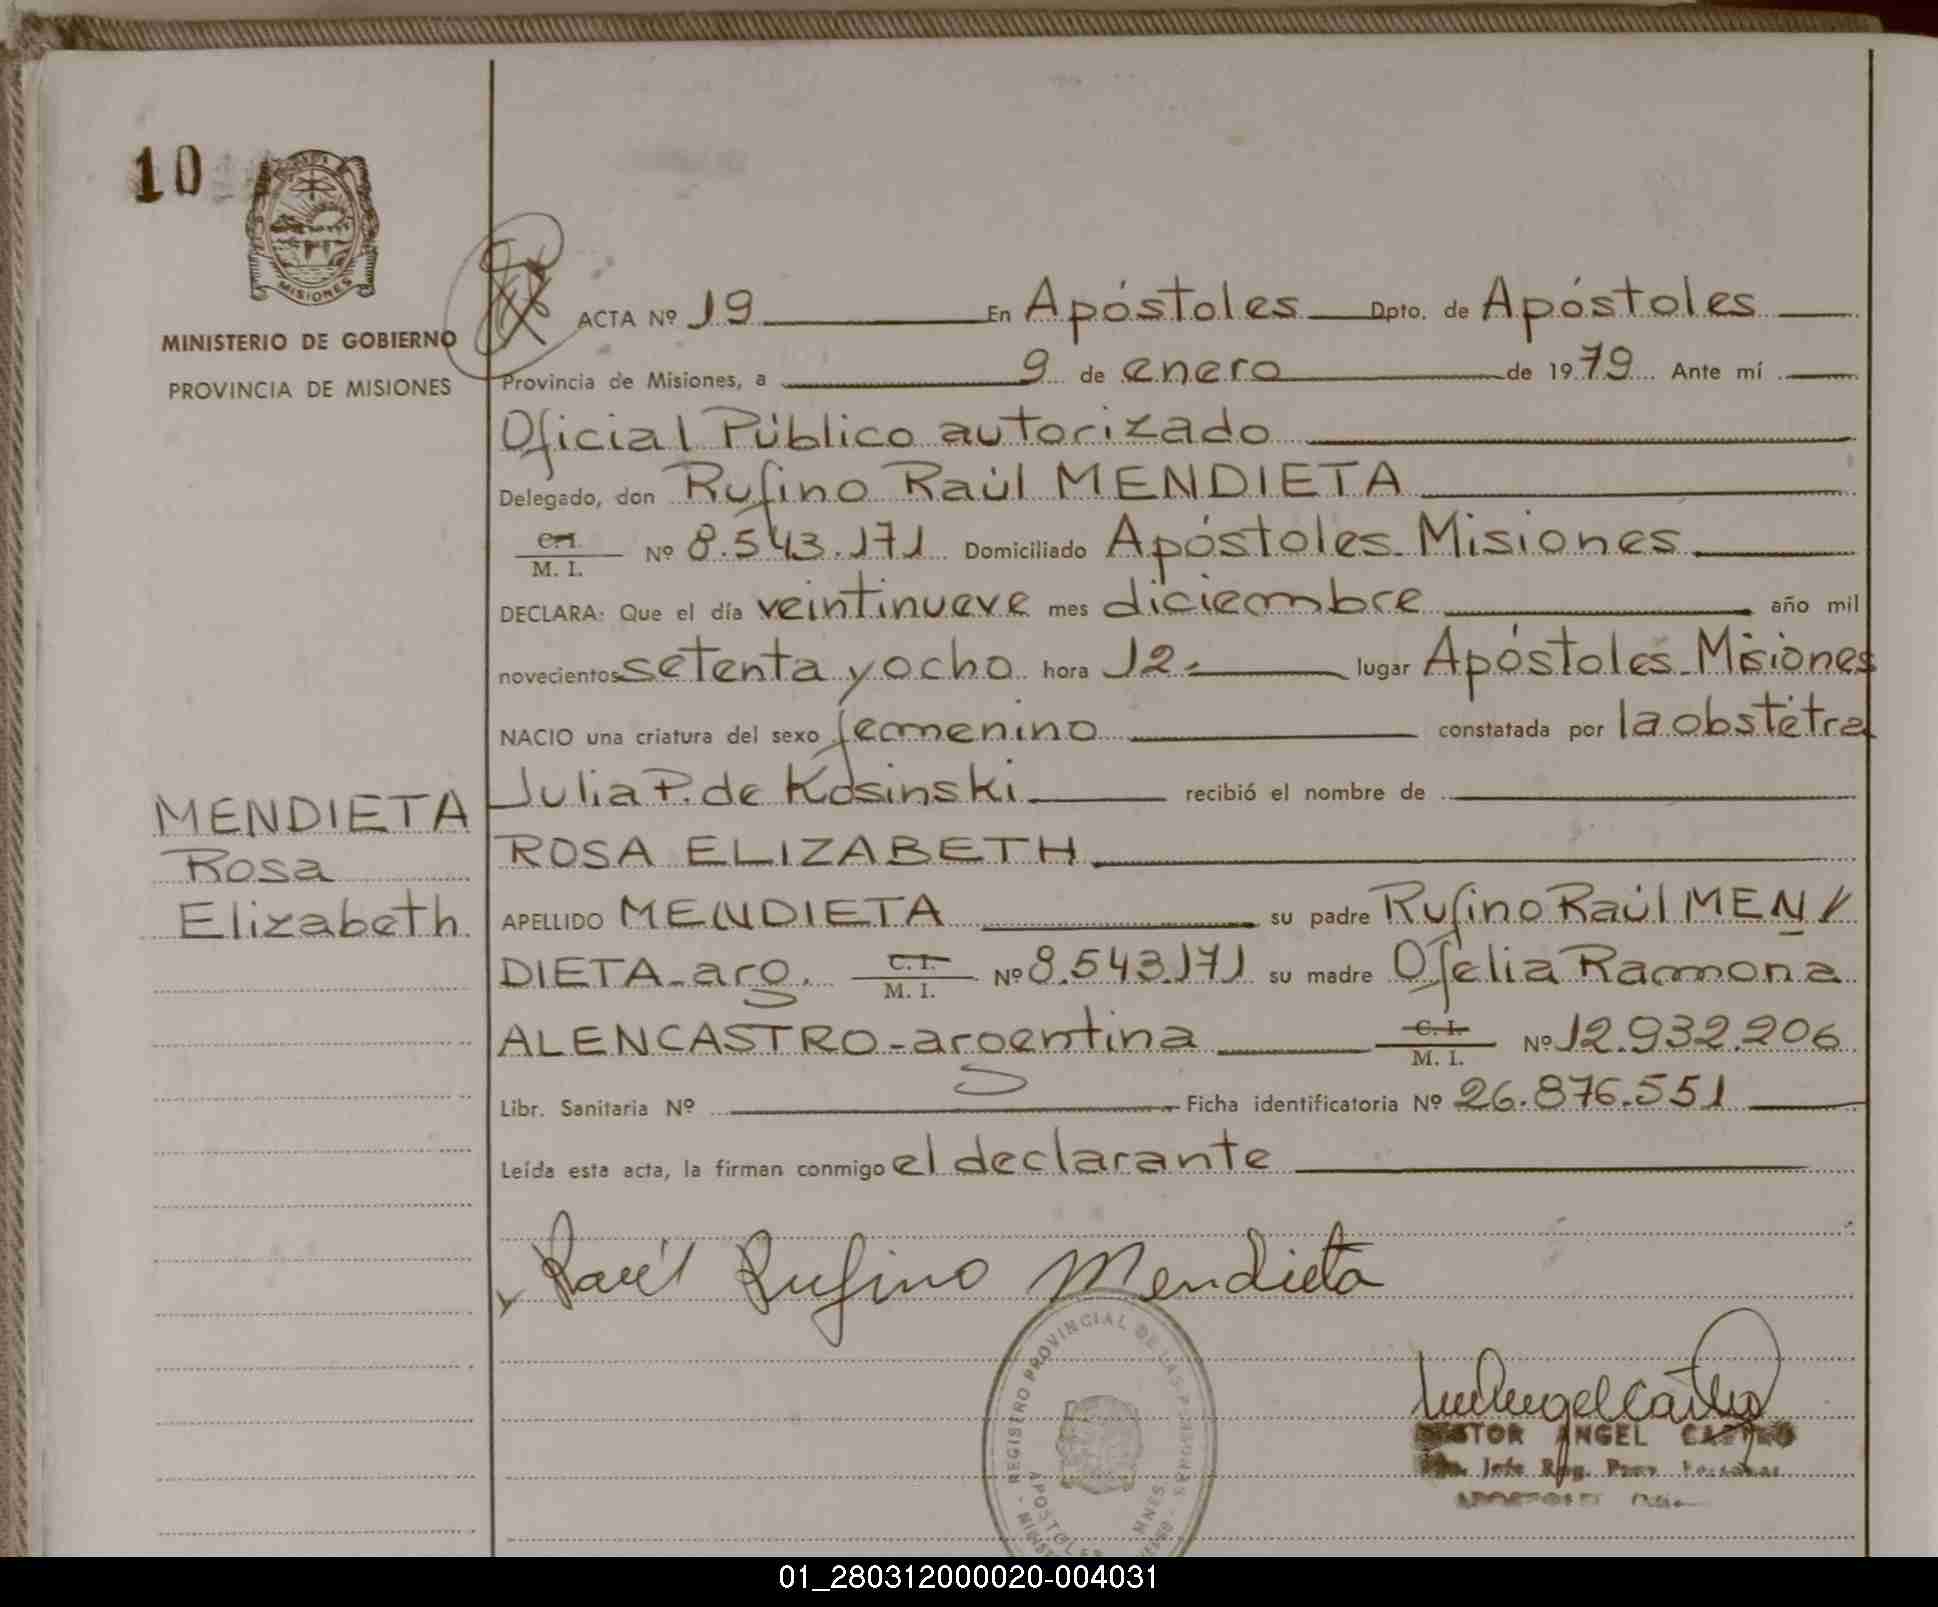 10
MISIONES
MINISTERIO DE GOBIERNO
PROVINCIA DE MISIONES
ACTA Nº 19 En Apóstoles Dpto. de Apóstoles
Provincia de Misiones, a 9 de enero de 1979 Ante mí
Oficial Público autorizado
Delegado, don Rufino Raúl MENDIETA
C.I. M. I. Nº 8.543.171 Domiciliado Apóstoles - Misiones
DECLARA: Que el día veintinueve mes diciembre año mil
novecientos setenta y ocho hora 12.- lugar Apóstoles - Misiones
NACIO una criatura del sexo femenino constatada por la obstétra
Julia P. de Kosinski recibió el nombre de
ROSA ELIZABETH
MENDIETA
Rosa
Elizabeth
APELLIDO MENDIETA su padre Rufino Raúl MEN
DIETA - arg. C.I. M. I. Nº 8.543.171 su madre Ofelia Ramona
ALENCASTRO - argentina C.I. M. I. Nº 12.932.206
Libr. Sanitaria Nº Ficha identificatoria Nº 26.876.551
Leída esta acta, la firman conmigo el declarante
Raúl Rufino Mendieta
REGISTRO PROVINCIAL DE LAS PERSONAS
APOSTOLES MNES
ANGEL CASTRO
Jefe Reg. Prov. Personas
APOSTOLES
01_280312000020-004031